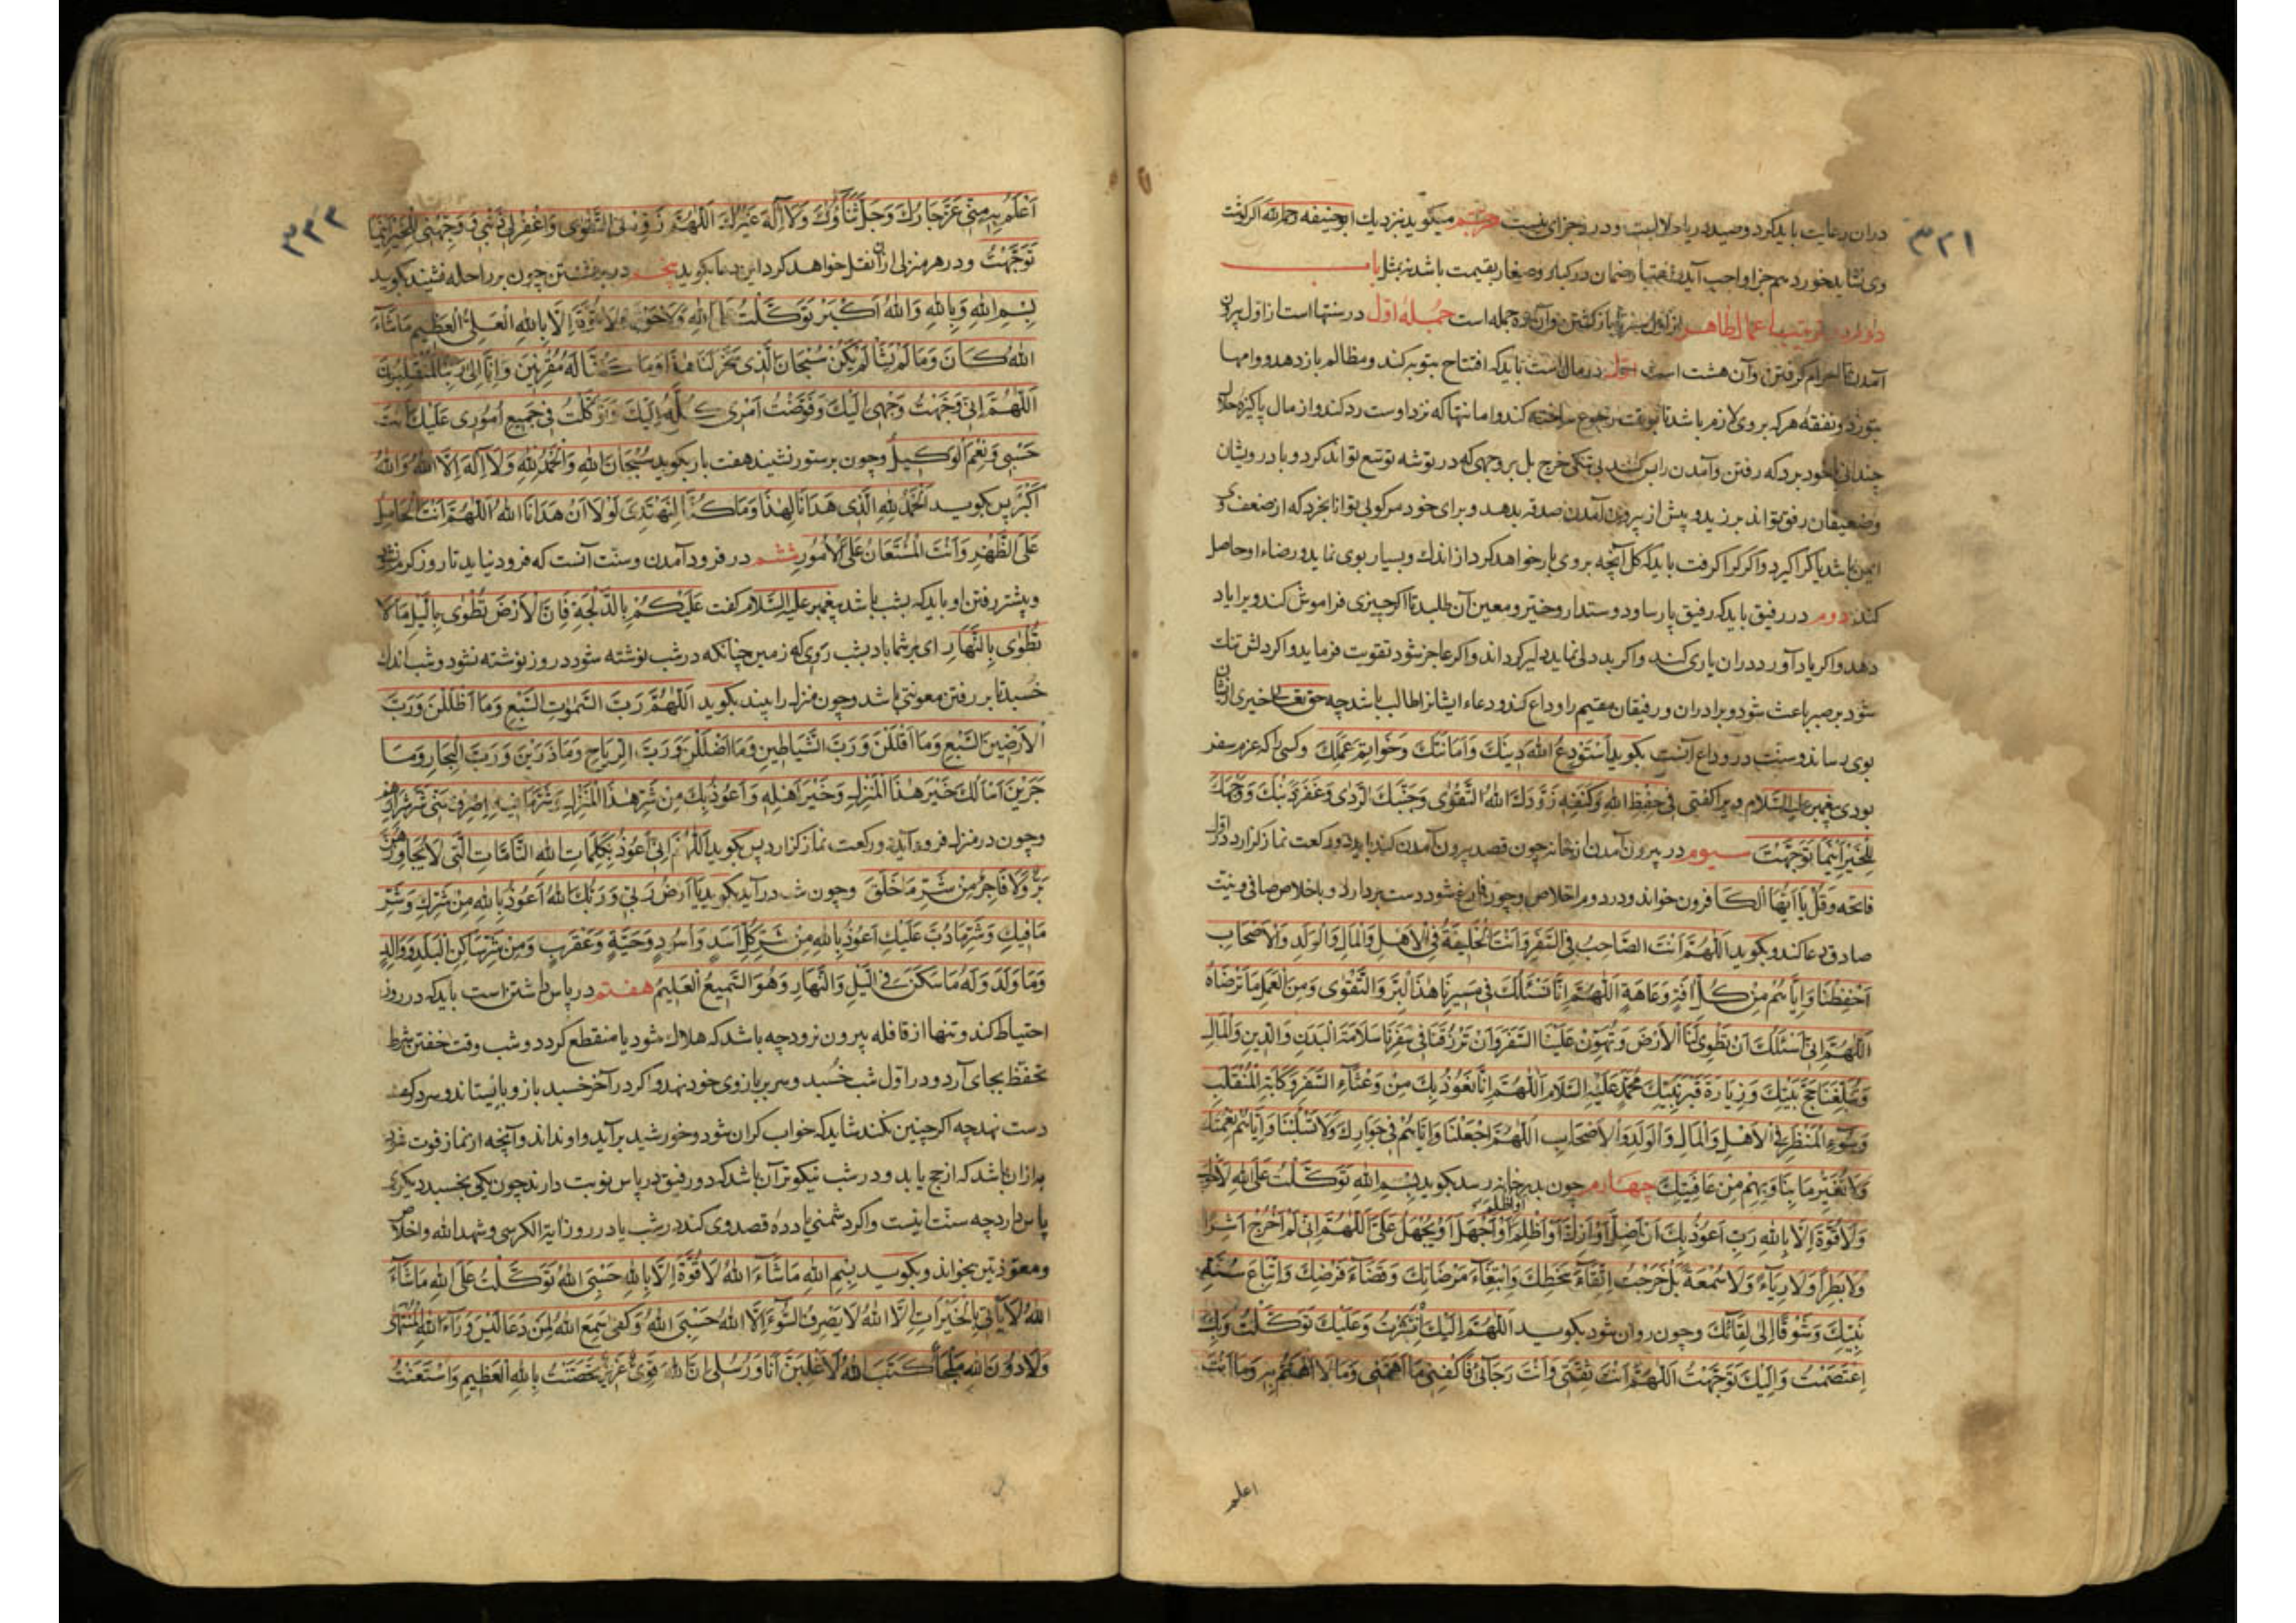 ۳۲۱
دران رعایت باید کرد و صید دریا حلالست و در وی جزای نیست مترجم میکوید نزدیك ابوحنیفه رحمه الله اکر کوشت
وی نشاید خورد هم جزا واجب آید باب
در ترتیب اعمال ظاهر از اول سفر تا بازکشتن و آن ده جمله است جمله اول در سنتهاست از اول بیرون
آمدن تا احرام کرفتن و آن هشت است اول در مال است باید که افتتاح بتوبه کند و مظالم باز دهد و وامها
بتوزد و نفقه هر که بر وی لازم باشد تا بوقت رجوع ساخته کند و امانتها که نزد اوست رد کند و از مال پاکیزه حلال
چندانی با خود برد که رفتن و آمدن را بس کند بی تنکی خرج بل بر وجهی که در توشه توسع تواند کرد و با درویشان
و ضعیفان رفق تواند برزید و پیش از بیرون آمدن صدقه بدهد و برای خود مرکوبی توانا بخرد که از ضعف وی
ایمن باشد یا کرا کیرد و اکر کرا کرفت باید که کل آنچه بر وی بار خواهد کرد از اندك و بسیار بوی نماید و رضاء او حاصل
کند دوم در رفیق باید که رفیق پارسا و دوستدار و خیر و معین آن طلبد تا اکر چیزی فراموش کند ویرا یاد
دهد و اکر یاد آورد دران یاری کند و اکر بد دلی نماید دلیر کرداند و اکر عاجز شود تقویت فرماید و اکر دلش تنك
شود بر صبر باعث شود و برادران و رفیقان مقیم را وداع کند و دعاء ایشانرا طالب باشد چه حق تعالی خیری از ایشان
بوی رساند و سنت در وداع آنست بکوید اَسْتَوْدِعُ اللهَ دِينَكَ وَاَمَانَتَكَ وَخَوَاتِيمَ عَمَلِكَ و کسی را که عزم سفر
بودی پیغمبر علیه السلام ویرا کفتی فِي حِفْظِ اللهِ وَكَنَفِهِ زَوَّدَكَ اللهُ التَّقْوٰى وَجَنَّبَكَ الرَّدٰى وَغَفَرَ ذَنْبَكَ وَوَجَّهَكَ
لِلْخَيْرِ اَيْنَمَا تَوَجَّهْتَ سیوم در بیرون آمدن از خانه چون قصد بیرون آمدن کند باید دو رکعت نماز کزارد در اول
فاتحه وَقُلْ يَا اَيُّهَا الْكَافِرُون خواند و در دوم اخلاص و چون فارغ شود دست بردارد و باخلاص صافی و نیت
صادق دعا کند و بکوید اَللّٰهُمَّ اَنْتَ الصَّاحِبُ فِي السَّفَرِ وَاَنْتَ الْخَلِيفَةُ فِي الْاَهْلِ وَالْمَالِ وَالْوَلَدِ وَالْاَصْحَابِ
اِحْفَظْنَا وَاِيَّاهُمْ مِنْ كُلِّ اٰفَةٍ وَعَاهَةٍ اَللّٰهُمَّ اِنَّا نَسْئَلُكَ فِي مَسِيرِنَا هٰذَا الْبِرَّ وَالتَّقْوٰى وَمِنَ الْعَمَلِ مَا تَرْضَاهُ
اَللّٰهُمَّ اِنِّي اَسْئَلُكَ اَنْ تَطْوِيَ لَنَا الْاَرْضَ وَتُهَوِّنَ عَلَيْنَا السَّفَرَ وَاَنْ تَرْزُقَنَا فِي سَفَرِنَا سَلَامَةَ الْبَدَنِ وَالدِّينِ وَالْمَالِ
وَتُبَلِّغَنَا حَجَّ بَيْتِكَ وَزِيَارَةَ قَبْرِ نَبِيِّكَ مُحَمَّدٍ عَلَيْهِ السَّلَامُ اَللّٰهُمَّ اِنَّا نَعُوذُ بِكَ مِنْ وَعْثَاءِ السَّفَرِ وَكَابَةِ الْمُنْقَلَبِ
وَسُوءِ الْمَنْظَرِ فِي الْاَهْلِ وَالْمَالِ وَالْوَلَدِ وَالْاَصْحَابِ اَللّٰهُمَّ اجْعَلْنَا وَاِيَّاهُمْ فِي جِوَارِكَ وَلَا تَسْلُبْنَا وَاِيَّاهُمْ نِعْمَتَكَ
وَلَا تُغَيِّرْ مَا بِنَا وَبِهِمْ مِنْ عَافِيَتِكَ چهارم چون بدر خانه رسد بکوید بِسْمِ اللهِ تَوَكَّلْتُ عَلَى اللهِ لَا حَوْلَ
وَلَا قُوَّةَ اِلَّا بِاللهِ رَبِّ اَعُوذُ بِكَ اَنْ اَضِلَّ اَوْ اَزِلَّ اَوْ اَظْلِمَ اَوْ اُظْلَمَ اَوْ اَجْهَلَ اَوْ يُجْهَلَ عَلَيَّ اَللّٰهُمَّ اِنِّي لَمْ اَخْرُجْ اَشِرًا
وَلَا بَطِرًا وَلَا رِيَاءً وَلَا سُمْعَةً بَلْ خَرَجْتُ اِتِّقَاءَ سَخَطِكَ وَابْتِغَاءَ مَرْضَاتِكَ وَقَضَاءَ فَرْضِكَ وَاتِّبَاعَ سُنَّةِ
نَبِيِّكَ وَشَوْقًا اِلٰى لِقَائِكَ و چون روان شود بکوید اَللّٰهُمَّ اِلَيْكَ انْتَشَرْتُ وَعَلَيْكَ تَوَكَّلْتُ وَبِكَ
اعْتَصَمْتُ وَاِلَيْكَ تَوَجَّهْتُ اَللّٰهُمَّ اَنْتَ ثِقَتِي وَاَنْتَ رَجَائِي فَاكْفِنِي مَا اَهَمَّنِي وَمَا لَا اَهْتَمُّ بِهِ وَمَا اَنْتَ
اعلم
۳۲۲
اَعْلَمُ بِهِ مِنِّي عَزَّ جَارُكَ وَجَلَّ ثَنَاؤُكَ وَلَا اِلٰهَ غَيْرُكَ اَللّٰهُمَّ زَوِّدْنِي التَّقْوٰى وَاغْفِرْ لِي ذَنْبِي وَوَجِّهْنِي لِلْخَيْرِ اَيْنَمَا
تَوَجَّهْتُ و در هر منزلی ازان نقل خواهد کرد این دعا بکوید پنجم در برنشستن چون بر راحله نشیند بکوید
بِسْمِ اللهِ وَبِاللهِ وَاللهُ اَكْبَرُ تَوَكَّلْتُ عَلَى اللهِ وَلَا حَوْلَ وَلَا قُوَّةَ اِلَّا بِاللهِ الْعَلِيِّ الْعَظِيمِ مَا شَاءَ
اللهُ كَانَ وَمَا لَمْ يَشَأْ لَمْ يَكُنْ سُبْحَانَ الَّذِي سَخَّرَ لَنَا هٰذَا وَمَا كُنَّا لَهُ مُقْرِنِينَ وَاِنَّا اِلٰى رَبِّنَا لَمُنْقَلِبُونَ
اَللّٰهُمَّ اِنِّي وَجَّهْتُ وَجْهِيَ اِلَيْكَ وَفَوَّضْتُ اَمْرِي كُلَّهُ اِلَيْكَ وَتَوَكَّلْتُ فِي جَمِيعِ اُمُورِي عَلَيْكَ اَنْتَ
حَسْبِي وَنِعْمَ الْوَكِيلُ و چون بر ستور نشیند هفت بار بکوید سُبْحَانَ اللهِ وَالْحَمْدُ لِلّٰهِ وَلَا اِلٰهَ اِلَّا اللهُ وَاللهُ
اَكْبَرُ پس بکوید اَلْحَمْدُ لِلّٰهِ الَّذِي هَدَانَا لِهٰذَا وَمَا كُنَّا لِنَهْتَدِيَ لَوْلَا اَنْ هَدَانَا اللهُ اَللّٰهُمَّ اَنْتَ الْحَامِلُ
عَلَى الظَّهْرِ وَاَنْتَ الْمُسْتَعَانُ عَلَى الْاُمُورِ ششم در فرود آمدن و سنت آنست که فرود نیاید تا روز کرم نشود
و بیشتر رفتن او باید که بشب باشد پیغمبر علیه السلام کفت عَلَيْكُمْ بِالدُّلْجَةِ فَاِنَّ الْاَرْضَ تُطْوٰى بِاللَّيْلِ مَا لَا
تُطْوٰى بِالنَّهَارِ ای بر شما باد بشب روی که زمین چنانکه در شب نوشته شود در روز نوشته نشود و شب اندك
خسبد تا بر رفتن معونتی باشد و چون منزل را بیند بکوید اَللّٰهُمَّ رَبَّ السَّمٰوَاتِ السَّبْعِ وَمَا اَظْلَلْنَ وَرَبَّ
الْاَرَضِينَ السَّبْعِ وَمَا اَقْلَلْنَ وَرَبَّ الشَّيَاطِينِ وَمَا اَضْلَلْنَ وَرَبَّ الرِّيَاحِ وَمَا ذَرَيْنَ وَرَبَّ الْبِحَارِ وَمَا
جَرَيْنَ اَسْاَلُكَ خَيْرَ هٰذَا الْمَنْزِلِ وَخَيْرَ اَهْلِهِ وَاَعُوذُ بِكَ مِنْ شَرِّ هٰذَا الْمَنْزِلِ وَشَرِّ مَا فِيهِ اِصْرِفْ عَنِّي شَرَّ شِرَارِهِمْ
و چون در منزل فرود آید دو رکعت نماز کزارد پس بکوید اَللّٰهُمَّ اِنِّي اَعُوذُ بِكَلِمَاتِ اللهِ التَّامَّاتِ الَّتِي لَا يُجَاوِزُهُنَّ
بَرٌّ وَلَا فَاجِرٌ مِنْ شَرِّ مَا خَلَقَ و چون شب درآید بکوید يَا اَرْضُ رَبِّي وَرَبُّكِ اللهُ اَعُوذُ بِاللهِ مِنْ شَرِّكِ وَشَرِّ
مَا فِيكِ وَشَرِّ مَا دَبَّ عَلَيْكِ اَعُوذُ بِاللهِ مِنْ شَرِّ كُلِّ اَسَدٍ وَاَسْوَدٍ وَحَيَّةٍ وَعَقْرَبٍ وَمِنْ شَرِّ سَاكِنِ الْبَلَدِ وَوَالِدٍ
وَمَا وَلَدَ وَلَهُ مَا سَكَنَ فِي اللَّيْلِ وَالنَّهَارِ وَهُوَ السَّمِيعُ الْعَلِيمُ هفتم در پاس داشتن است باید که در روز
احتیاط کند و تنها از قافله بیرون نرود چه باشد که هلاك شود یا منقطع کردد و شب وقت خفتن شرط
تحفظ بجای آرد و در اول شب خسبد و سر بر بازوی خود نهد و اکر در آخر خسبد بازو بایستاند و سر در کف
دست نهد چه اکر چنین نکند شاید که خواب کران شود و خورشید برآید و او نداند و آنچه از نماز فوت شود
به ازان باشد که از حج یابد و در شب نیکوتر آن باشد که دو رفیق در پاس نوبت دارند چون یکی بخسبد دیکری
پاس دارد چه سنت اینست و اکر دشمنی یا دده قصد وی کند در شب یا در روز آیة الکرسی و شهد الله و اخلاص
و معوذتین بخواند و بکوید بِسْمِ اللهِ مَا شَاءَ اللهُ لَا قُوَّةَ اِلَّا بِاللهِ حَسْبِيَ اللهُ تَوَكَّلْتُ عَلَى اللهِ مَا شَاءَ
اللهُ لَا يَأْتِي بِالْخَيْرَاتِ اِلَّا اللهُ لَا يَصْرِفُ السُّوءَ اِلَّا اللهُ حَسْبِيَ اللهُ وَكَفٰى سَمِعَ اللهُ لِمَنْ دَعَا لَيْسَ وَرَاءَ اللهِ الْمُنْتَهٰى
وَلَا دُونَ اللهِ مَلْجَأٌ كَتَبَ اللهُ لَاَغْلِبَنَّ اَنَا وَرُسُلِي اِنَّ اللهَ قَوِيٌّ عَزِيزٌ تَحَصَّنْتُ بِاللهِ الْعَظِيمِ وَاسْتَعَنْتُ